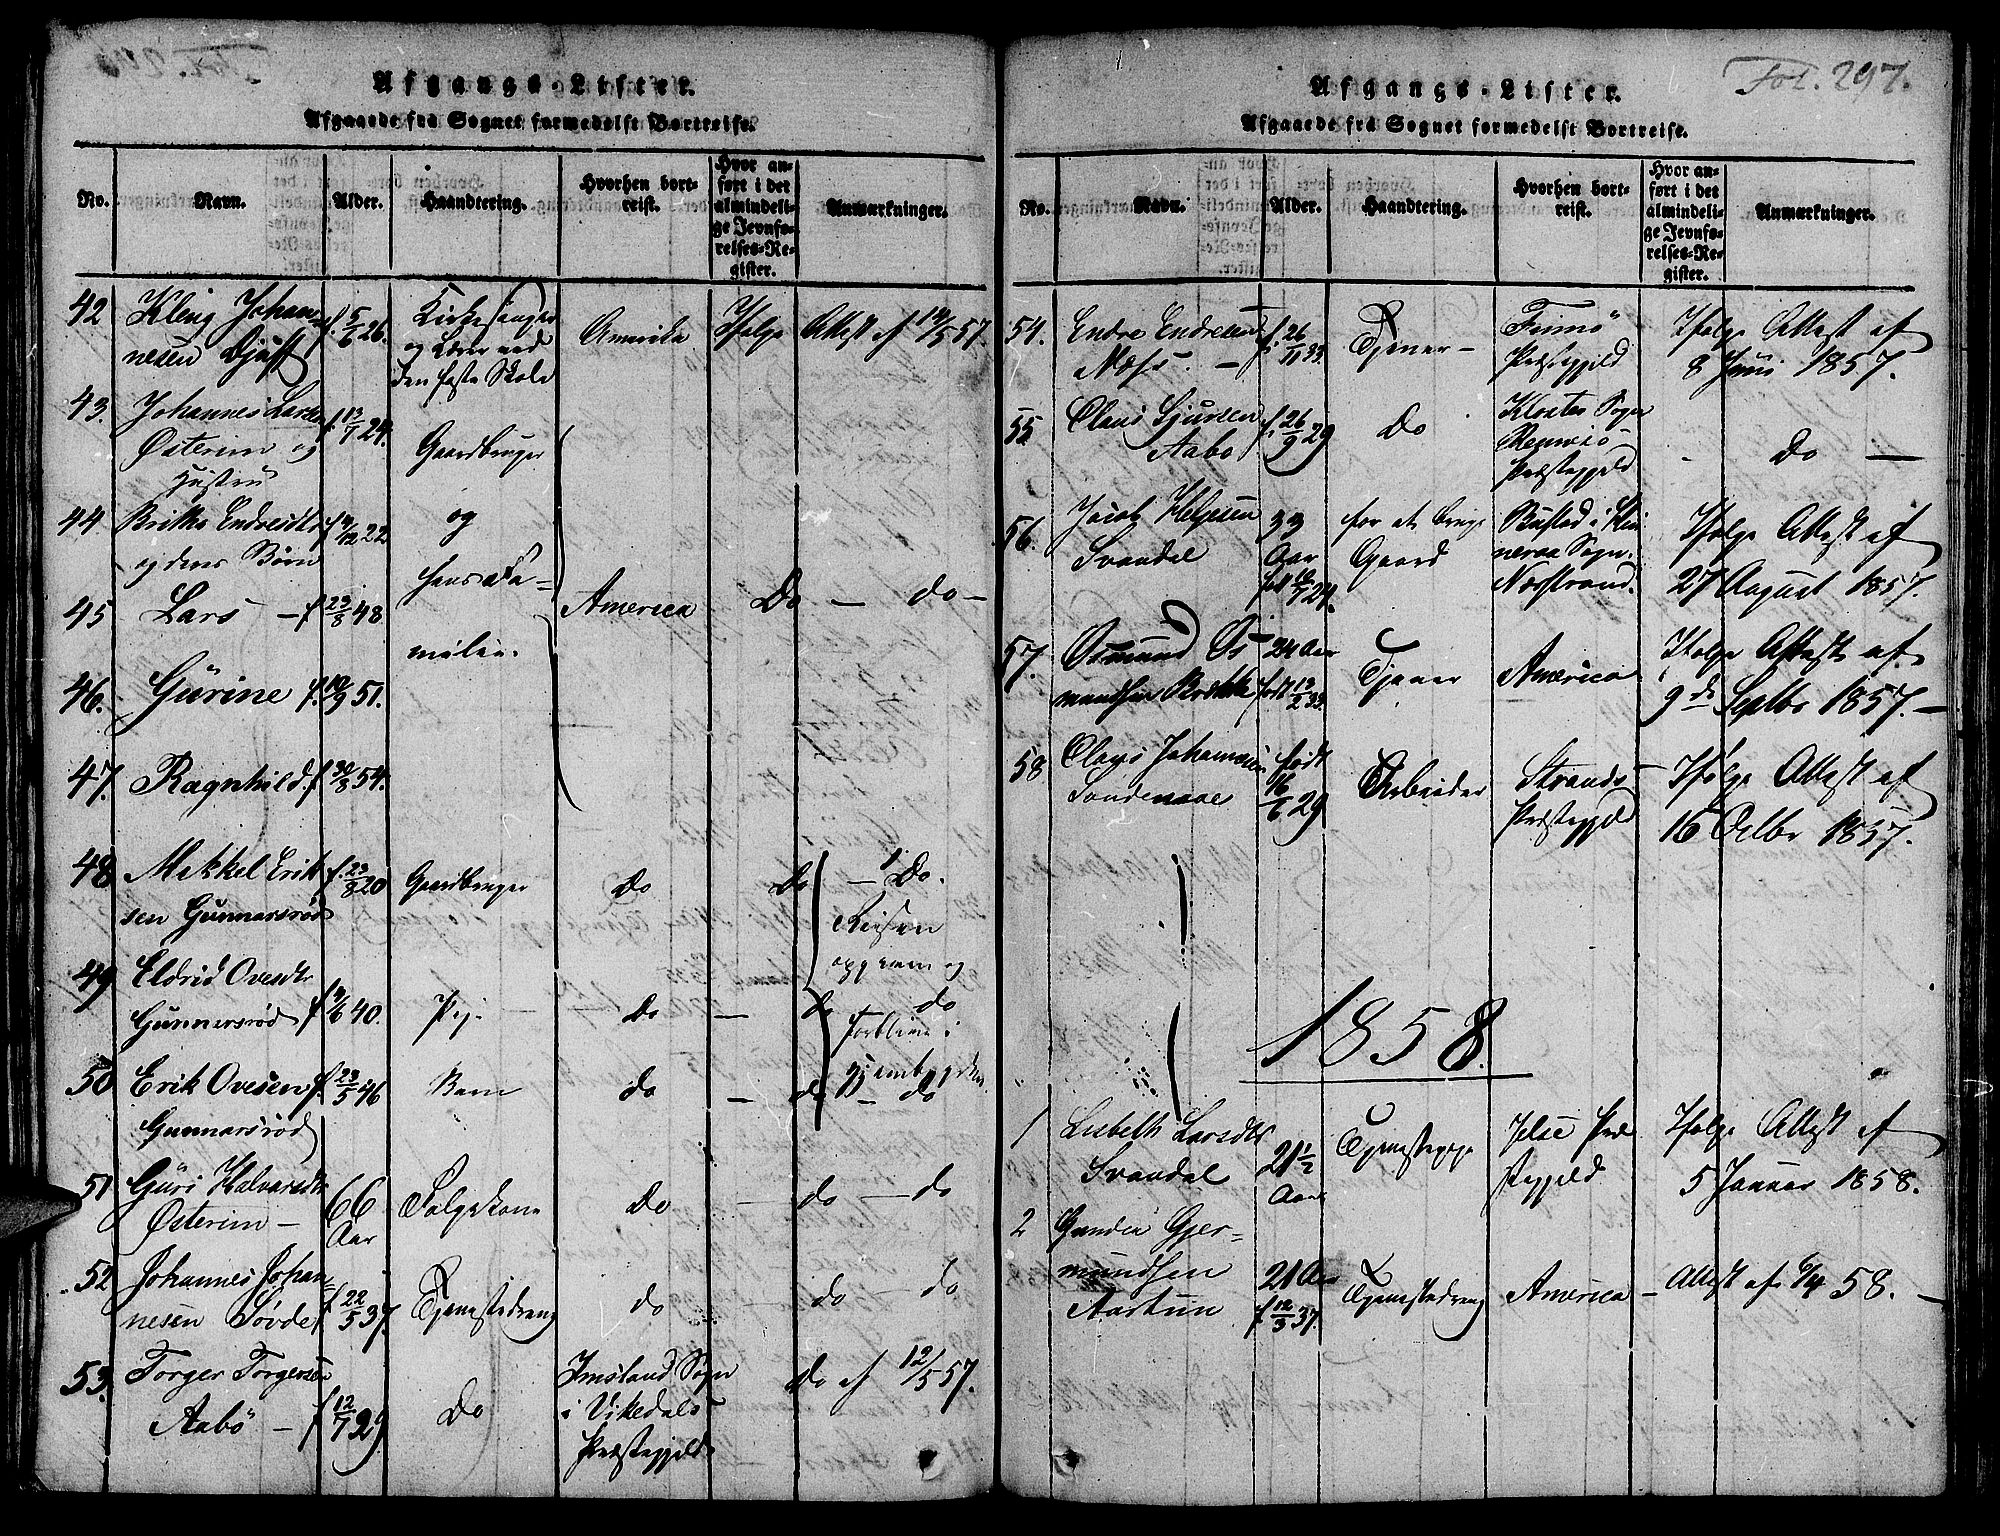 Afgangs-Lister.
Afgaaede fra Sognet formedelst Bortreise.
No. Navn. Alder. Haandtering. Hvorhen bortreist. Hvor anført i det almindelige Jevnførelses-Register. Anmærkninger.
42 Kling Johan- f. 5/6 26. Kirkesanger Amerika Ifølge Attest af 12/5 57.
nesen Djüft og Lærer ved
den faste Skole
43. Johannes Larsen f. 13/7 24.
Østerim og Gaardbruger
Hustru
44 Britha Endresdtr f. 12 22 og
og deres Børn
hans Fa-
45 Lars f. 23/8 48 America Do — do —
milie.
46. Gürine f. 9 51.
47. Ragnhild f. 30/8 54.
48 Mikkel Erik f. 23/8 20 Gaardbruger Do Do — Do.
sen Gunnarsrød Reisen
opgiven og
49 Eldrid Ovesdtr
Gunnersrød f. 6 40. Pige Do — do do
forbliver i
50 Erik Ovesen f. 23/5 46 Barn do — do — do
Gunnarsrød
51 Güri Halvorsdtr 66 Do — do — do
Østerim — Aar
52 Johannes Johan-
nesen Søvde f. 22/5 37. Tjenestedreng do do — do
53. Torger Torgersen Imsland Sogn Do af 12/5 57.
Aabø — f. 12/7 29 Do i Vikedals
Præstegjeld
Fol. 297.
Afgangs-Lister.
Afgaaede fra Sognet formedelst Bortreise.
No. Navn. Alder. Haandtering. Hvorhen bortreist. Hvor anført i det almindelige Jevnførelses-Register. Anmærkninger.
54. Endre Endresen f. 26/11 33. Tjener — Finnø Ifølge Attest af
Næss. — Præstegjeld 8 Juni 1857.
55 Claus Sjursen f. 26/9 29 Do Kloster Sogn
Aabø Rennesø — Do —
Præstegjeld
56. Jacob Helgesen 33 for at bruge Bustad i Hin Ifølge Attest af
Svandal Aar Gaard neraa Sogn
født 24. Nærstrand. 27 August 1857.
57. Osmund Os 24 Aar Tjener America Ifølge Attest af
mundsen Brekke født 12/2 33. 9de Septbr 1857. —
58 Claus Johannesen født Arbeider Strands Ifølge Attest af
Sandenaae 16 29 Præstegjeld 16 Octbr 1857.
1858.
1 Lisbeth Larsdtr 21 1/2 Tjenestepige Jelse Præ Ifølge Attest af
Svandal Aar stegjeld 5 Januar 1858.
2 Gunder Gjer-
mundsen 21 Aar Tjenestedreng America — Attest af 9/4 58. —
Aartun f. 12/3 37.